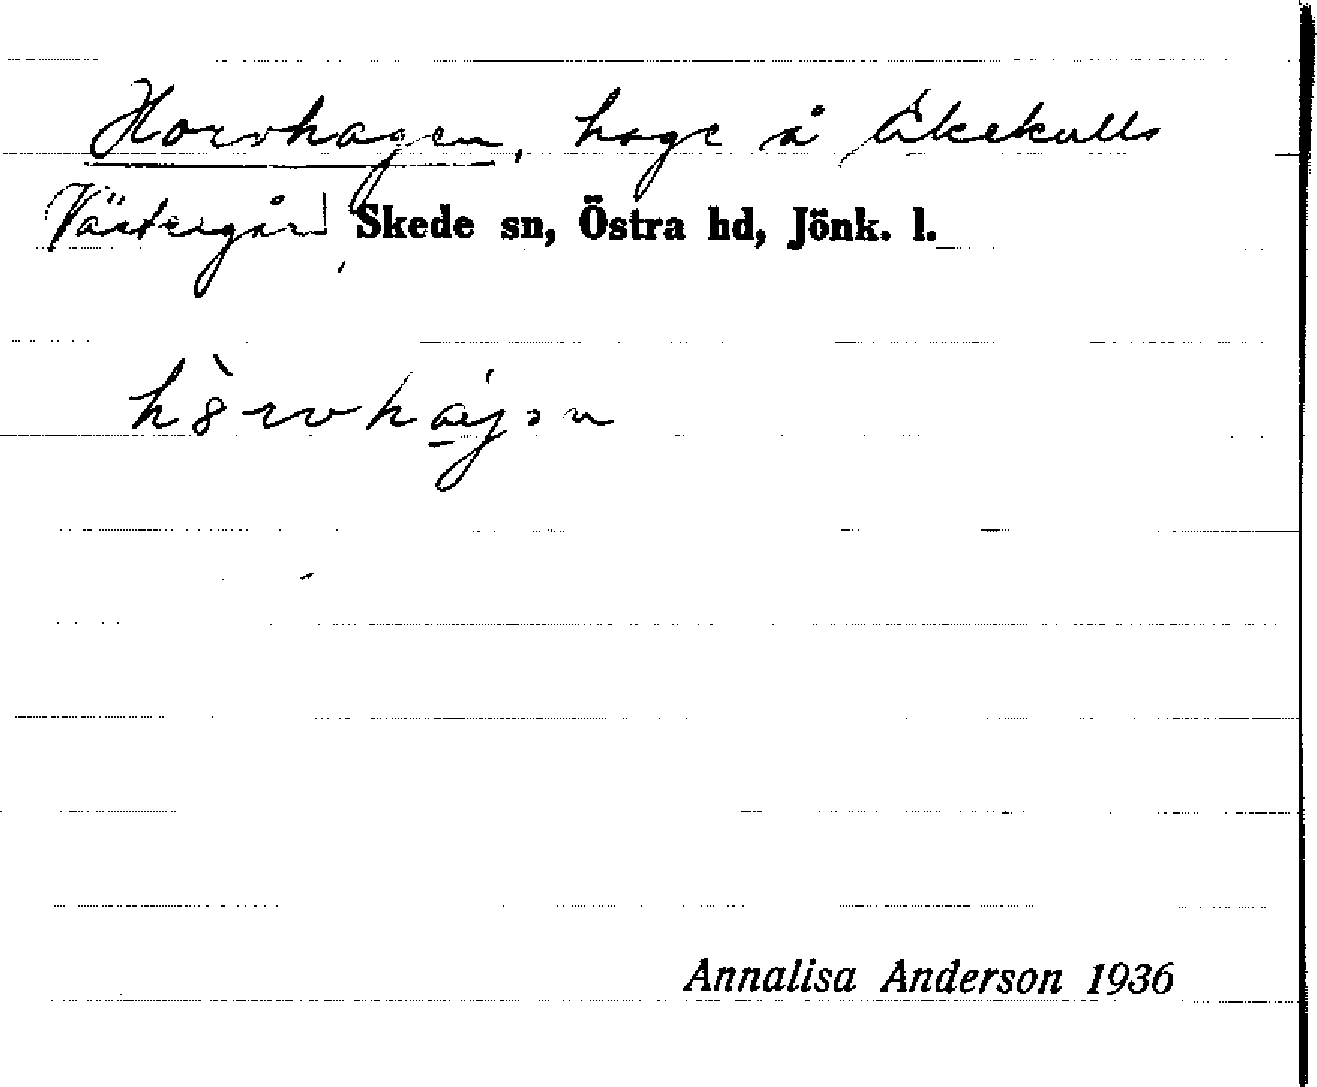 Horvhagen, hage å Åkekulls
Västergård Skede sn, Östra hd, Jönk. l.
hò̈rvhaɡ́ən
Annalisa Anderson 1936